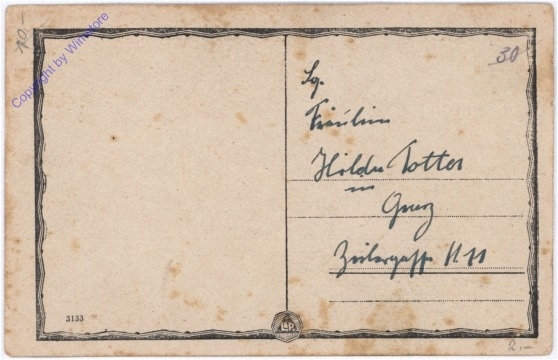 10.-
Copyright by Winstore
30
Sg.
Fräulein
Hilde Potter
in
Graz
Zeilergasse N 11
3133
L&P
2,-